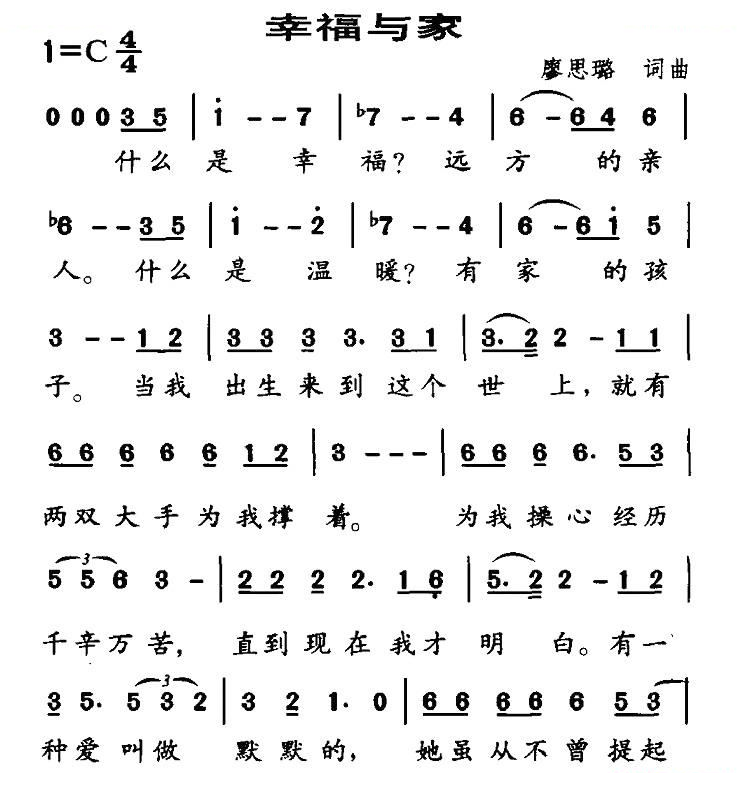 幸福与家
1=C 4/4
廖思璐 词曲
0 0 0 3 5 | 1 - - 7 | ♭7 - - 4 | 6 - 6 4 6 |
什么是幸福?远方的亲
♭6 - - 3 5 | 1 - - 2 | ♭7 - - 4 | 6 - 6 1 5 |
人。什么是温暖?有家的孩
3 - - 1 2 | 3 3 3 3. 3 1 | 3. 2 2 - 1 1 |
子。当我出生来到这个世上,就有
6 6 6 6 6 1 2 | 3 - - - | 6 6 6 6. 5 3 |
两双大手为我撑着。为我操心经历
3
5 5 6 3 - | 2 2 2 2. 1 6 | 5. 2 2 - 1 2 |
千辛万苦,直到现在我才明白。有一
3
3 5. 5 3 2 | 3 2 1. 0 | 6 6 6 6 6 5 3 |
种爱叫做默默的,她虽从不曾提起